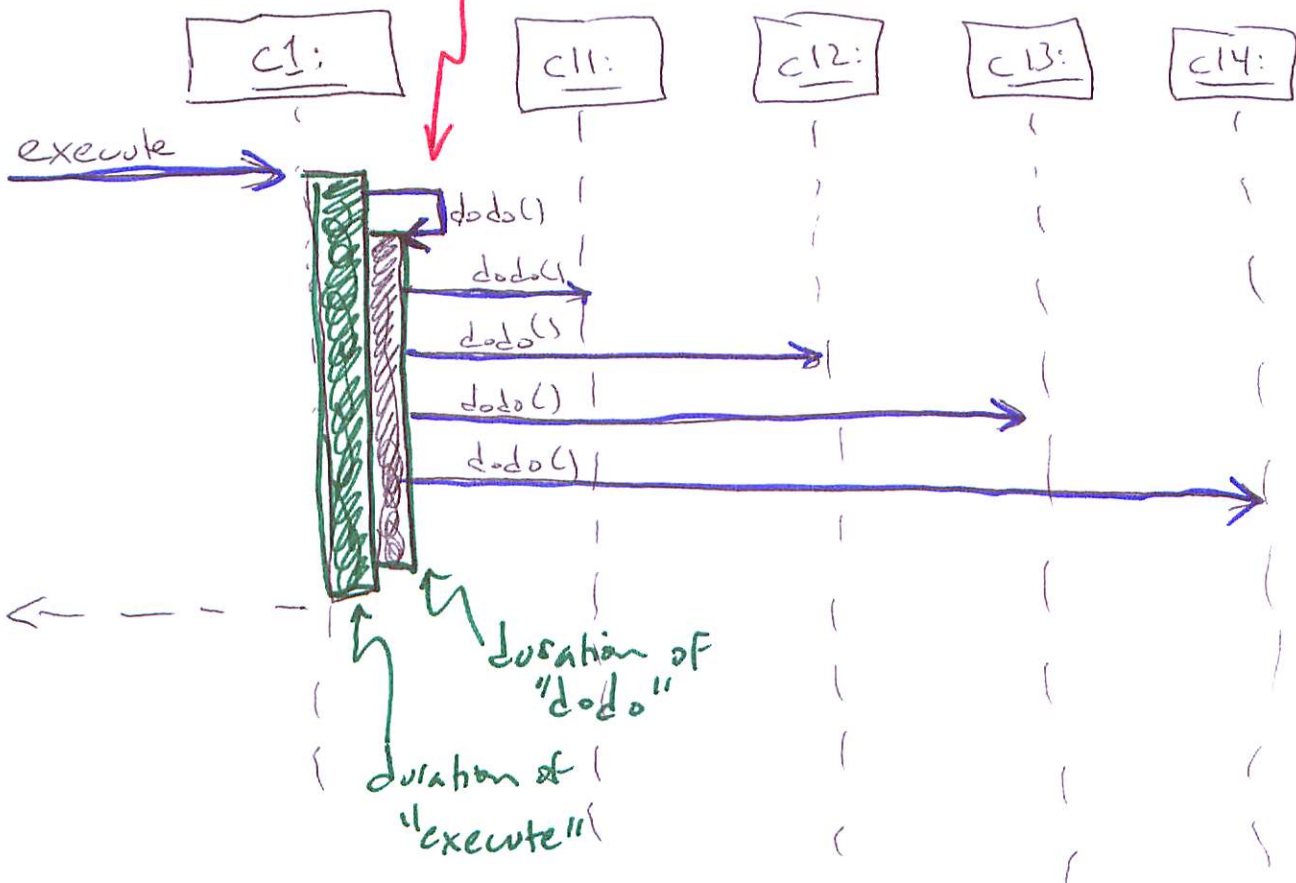 c1:
c11:
c12:
c13:
c14:
execute
dodo()
dodo()
dodo()
dodo()
dodo()
duration of
"dodo"
duration of
"execute"